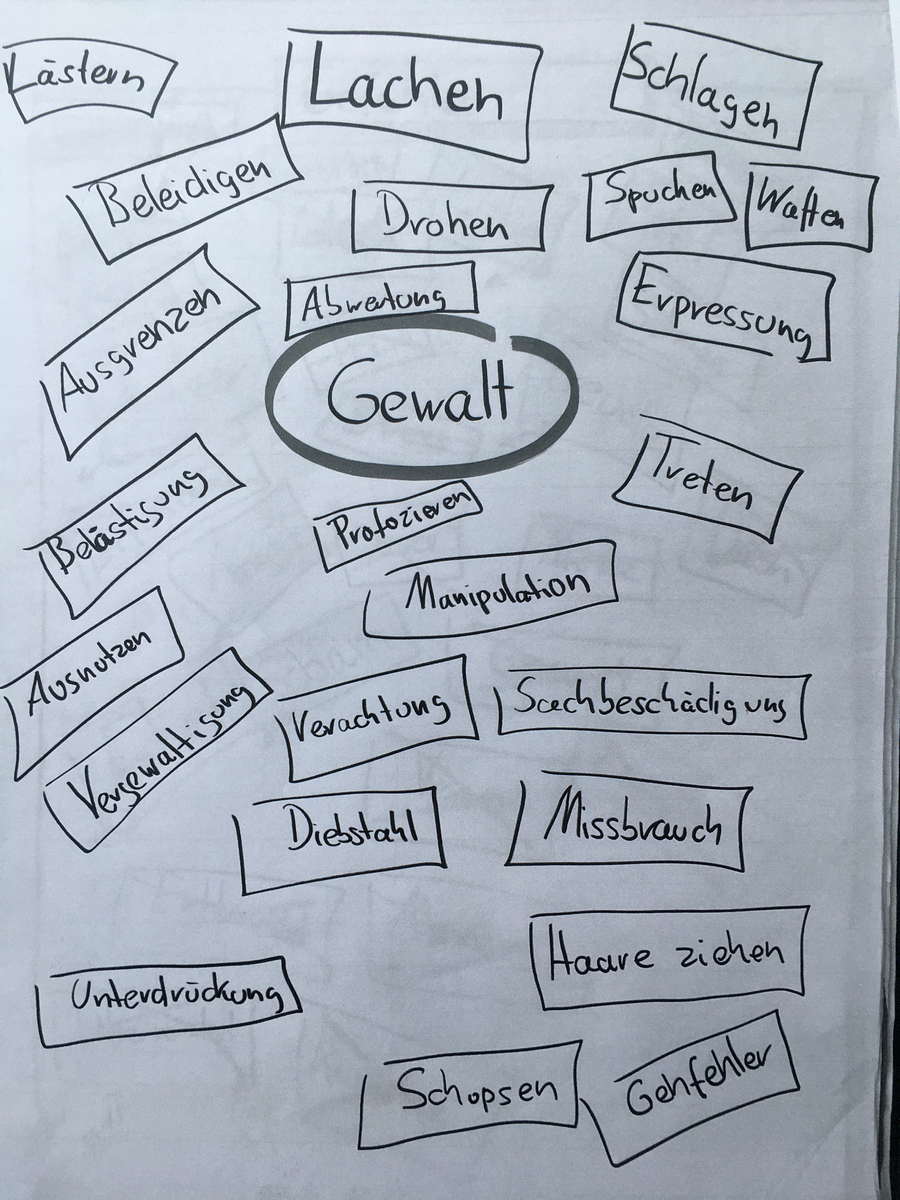 Lästern
Lachen
Schlagen
Beleidigen
Drohen
Spuchen
Waffen
Ausgrenzen
Abwertung
Erpressung
Gewalt
Belästigung
Profozieren
Treten
Manipulation
Ausnutzen
Vergewaltigung
Verachtung
Sachbeschädigung
Diebstahl
Missbrauch
Haare ziehen
Unterdrückung
Schopsen
Gehfehler